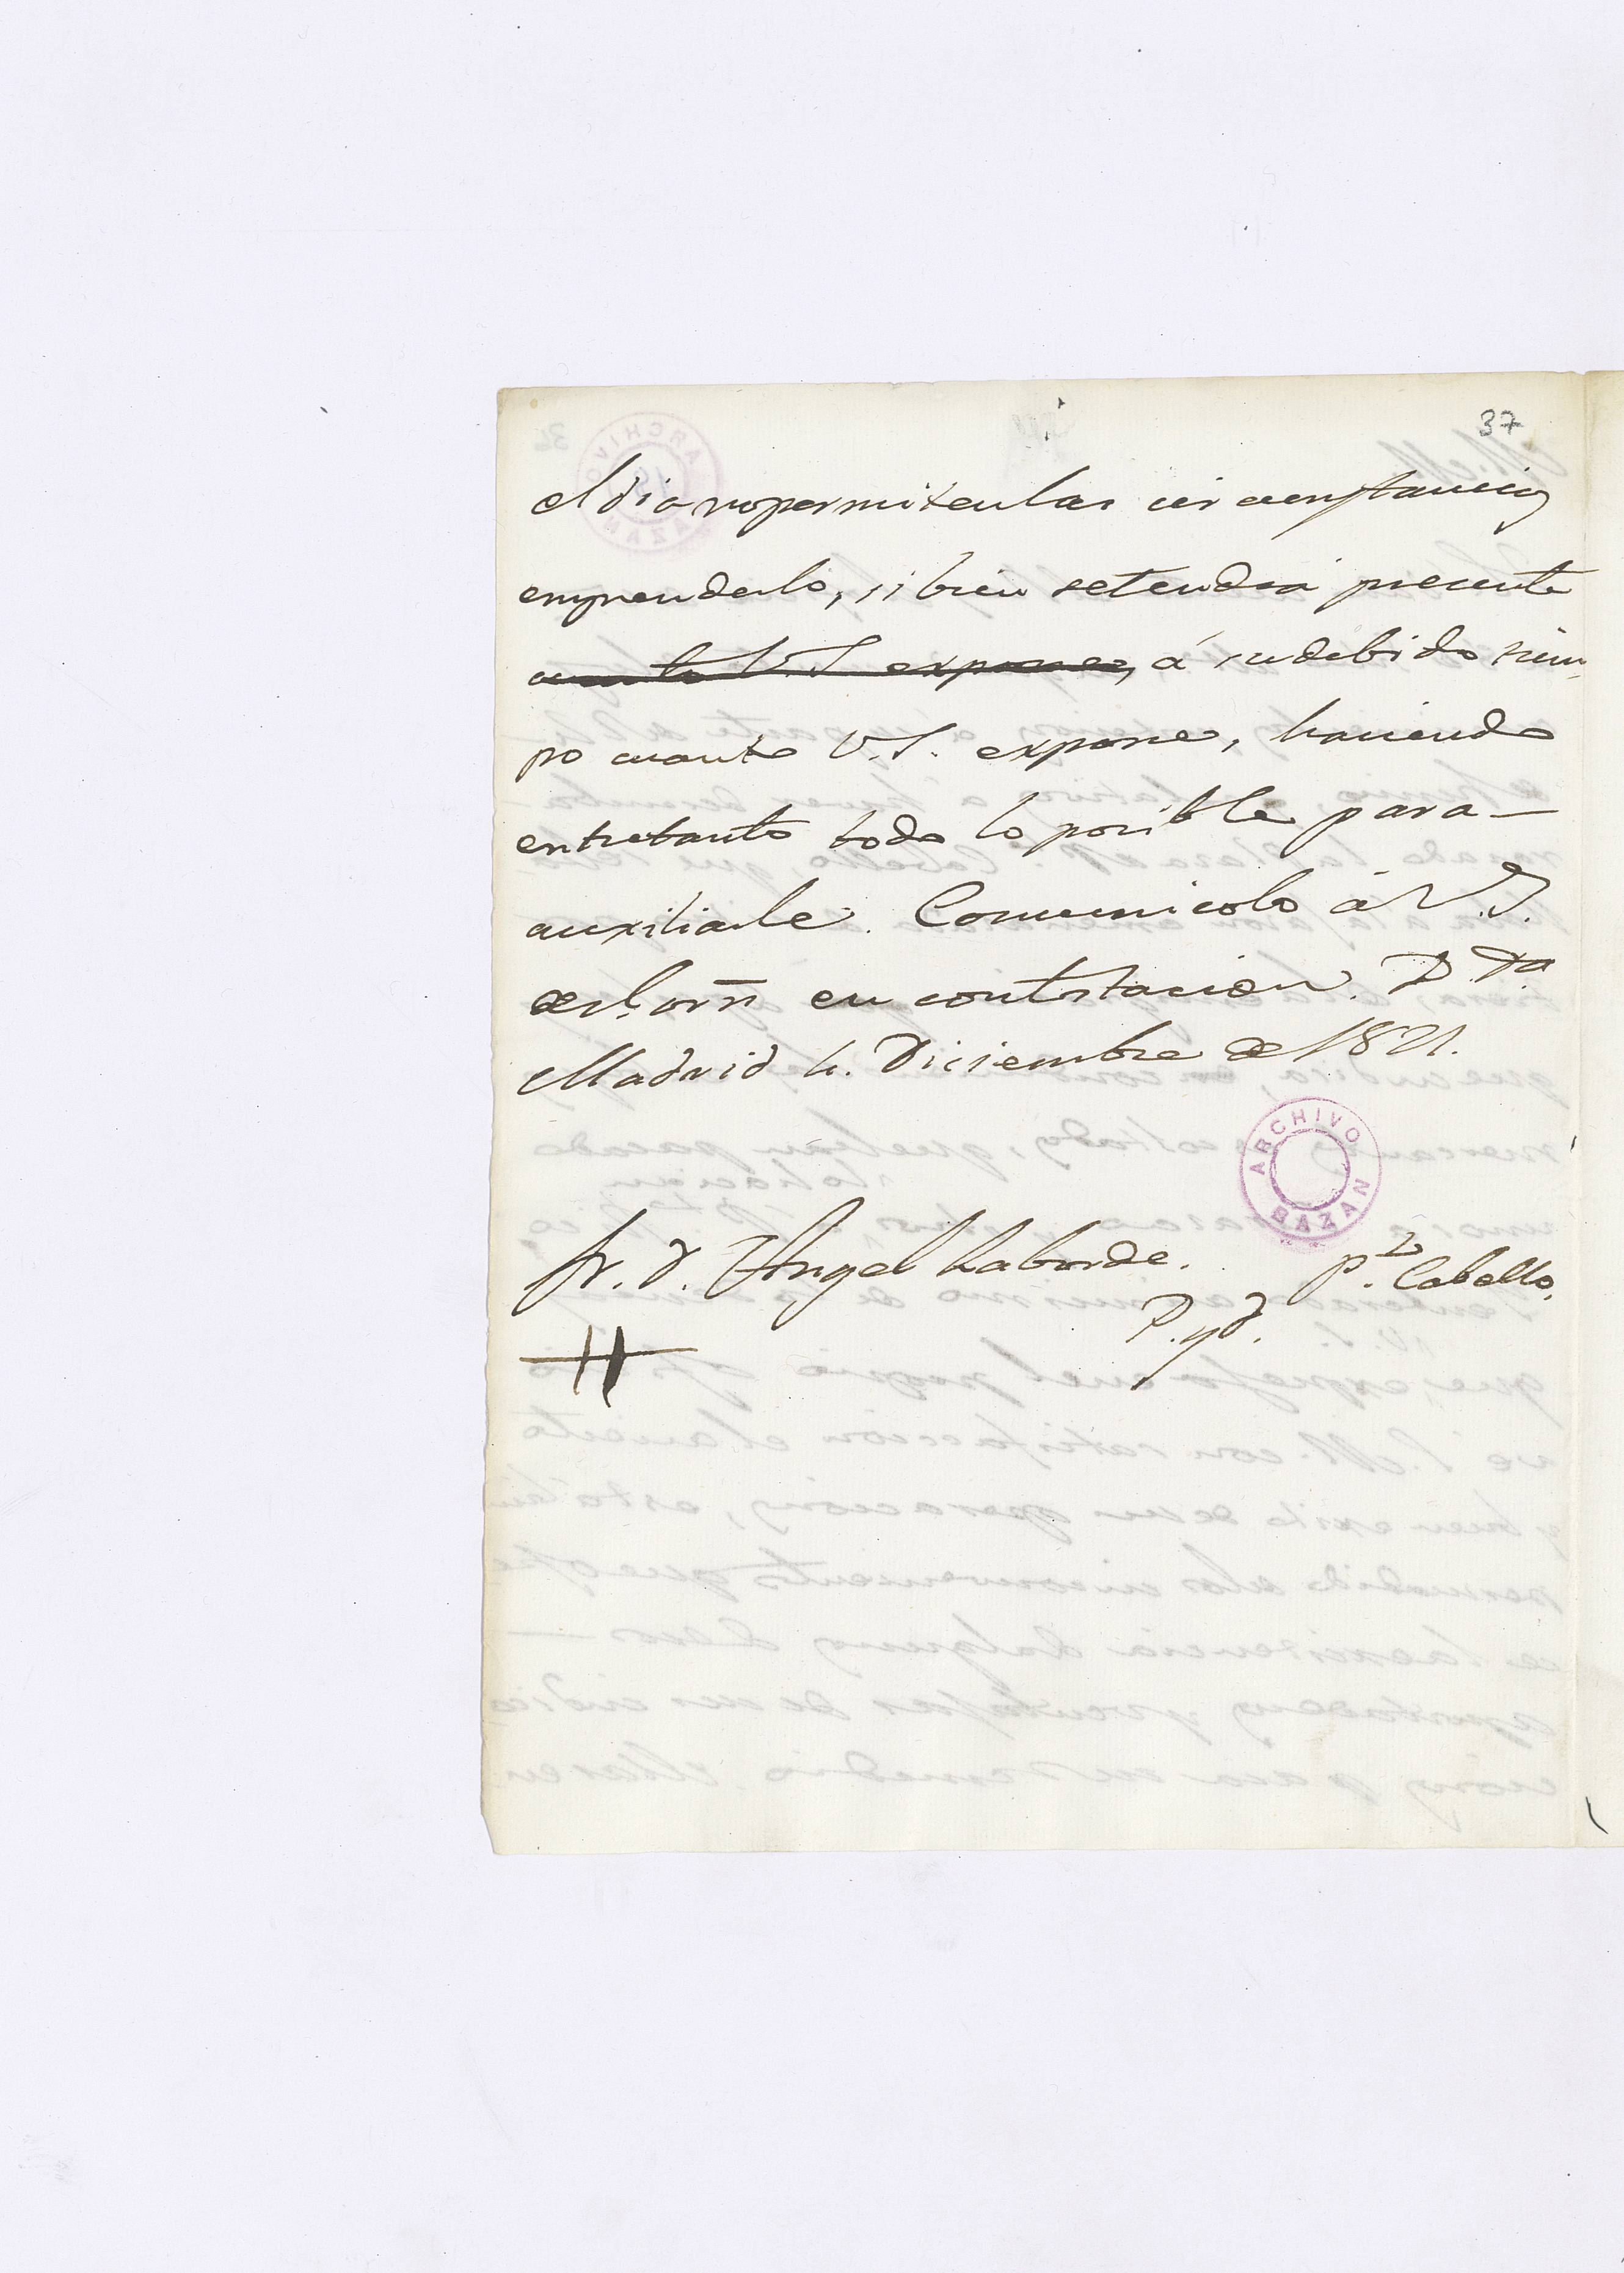 37
el dia no permiten las circunstancias
emprenderlo, si bien se tendrá presente
cuanto V.S. expone, á su debido tiem-
po cuanto V.S. expone, haciendo
entretanto todo lo posible para
auxiliarle. Comunicolo á V.S.
de Rl. orñ en contestacion. D. ga
Madrid 4. Diciembre de 1821.
ARCHIVO
BAZAN
Sr. D. Angel Laborde.
Pto. Cabello.